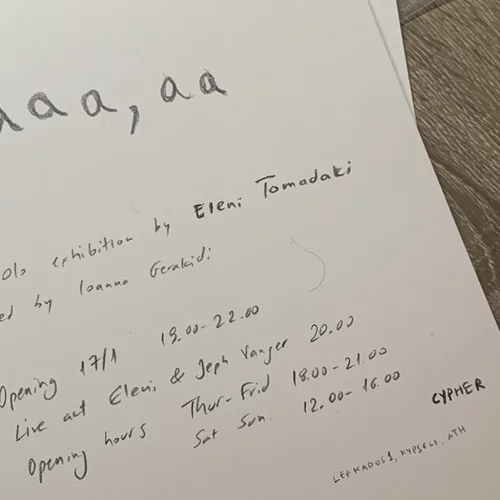 aaa, aa
olo exhibition by Eleni Tomadaki
ed by Ioanna Gerakidi
Opening 17/1 19.00-22.00
Live act Eleni & Jeph Vanger 20.00
Opening hours Thur-Frid 18.00-21.00
Sat Sun 12.00-16.00
CYPHER
LEFKADOS 1, KYPSELI, ATH